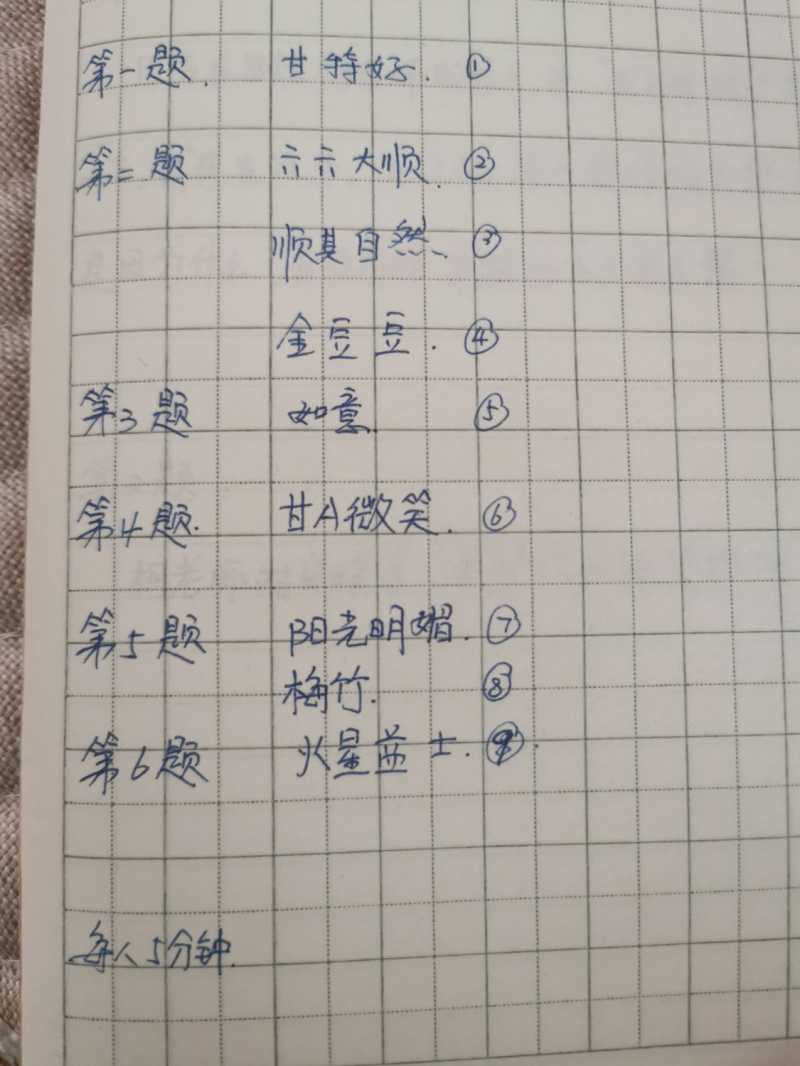 第一题. 甘特好. ①
第二题 六六大顺. ②
顺其自然、 ③
金豆豆. ④
第3题 如意. ⑤
第4题. 甘A微笑. ⑥
第5题 阳光明媚. ⑦
梅竹. ⑧
第6题 火星益士. ⑨.
每人5分钟.